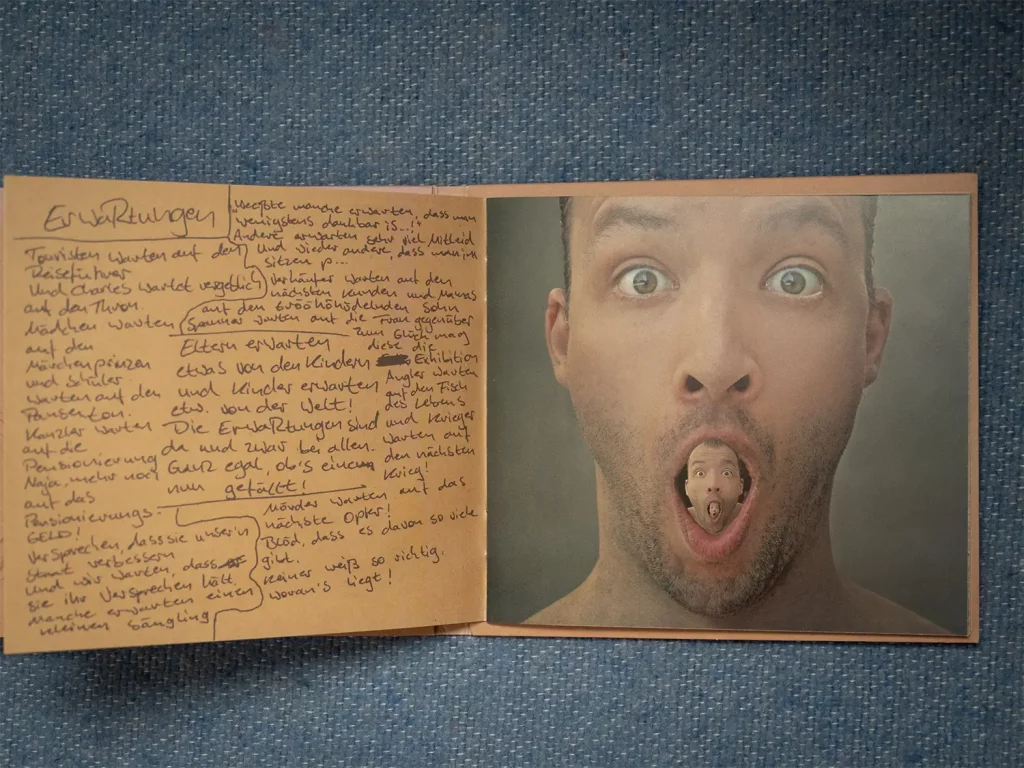 ErwaRtungen
Touristen warten auf den
Reiseführer
Und Charles wartet vergeblich
auf den Thron.
Mädchen warten
auf den
Märchenprinzen
und Schüler
warten auf den
Pausenton.
Kanzler warten
auf die
Pensionierung
Naja, mehr noch
auf das
Pensionierungs-
GELD!
Versprechen, dass sie unser'n
Staat verbessern
und wir warten, dass
sie ihr Versprechen hält.
Manche erwarten einen
kleinen Säugling
manche erwarten, dass man
wenigstens dankbar is...!
Andere erwarten sehr viel Mitleid
Und wieder andere, dass man im
sitzen p...
Verkäufer warten auf den
nächsten Kunden und Mamas
auf den Sohn
Spanner warten auf die Frau gegenüber
zum Glück mag
diese die
Exhibition
Angler warten
auf den Fisch
des Lebens
und Krieger
warten auf
den nächsten
Krieg!
Mörder warten auf das
nächste Opfer!
Blöd, dass es davon so viele
gibt.
Keiner weiß so richtig,
woran's liegt!
Eltern erwarten
etwas von den Kindern
und Kinder erwarten
etw. von der Welt!
Die ErwaRtungen sind
da und zwar bei allen.
Ganz egal, ob's einem
nun gefällt!